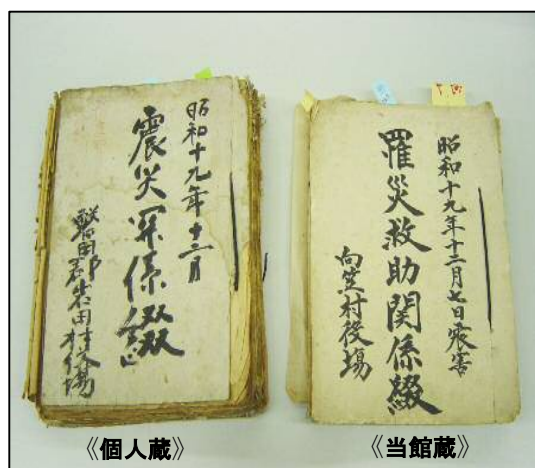 昭和十九年十二月
震災関係綴
磐田郡岩田村役場
《個人蔵》
昭和十九年十二月七日震害
罹災救助関係綴
向笠村役場
《当館蔵》